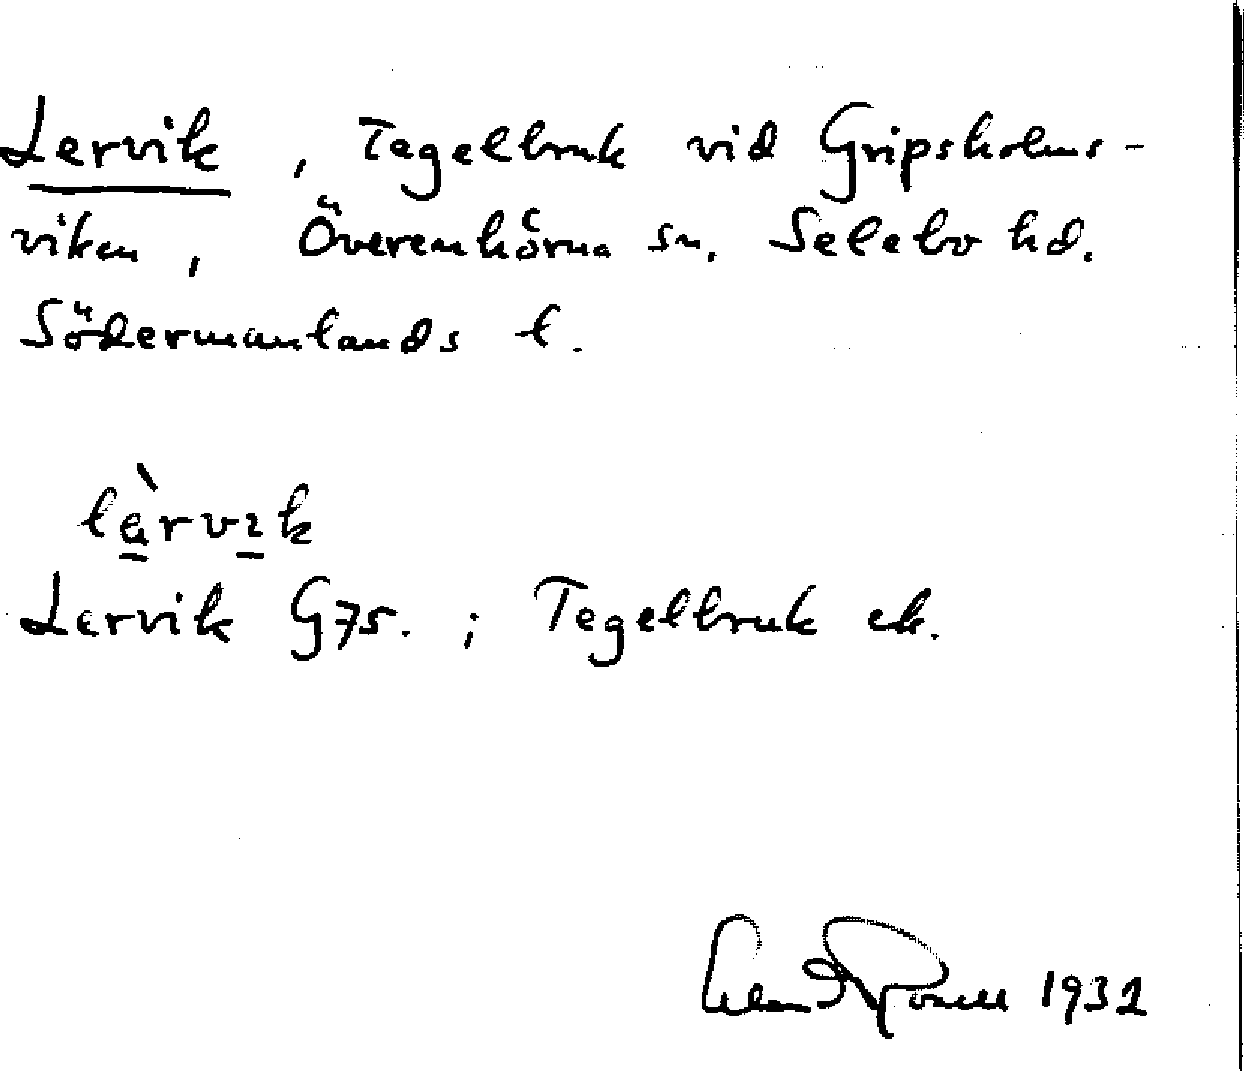 Lervik, Tegelbruk vid Gripsholms-
viken, Överenhörna sn. Selebo hd.
Södermanlands l.
lèrvık
Lervik G75. ; Tegelbruk ek.
1932